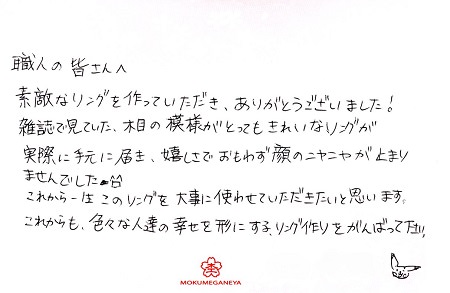 職人の皆さんへ
素敵なリングを作っていただき、ありがとうございました！
雑誌で見ていた、木目の模様がとってもきれいなリングが
実際に手元に届き、嬉しさでおもわず顔のニヤニヤが止まり
ませんでした
これから一生このリングを大事に使わせていただきたいと思います。
これからも、色々な人達の幸せを形にする、リング作りをがんばって下さい
MOKUMEGANEYA